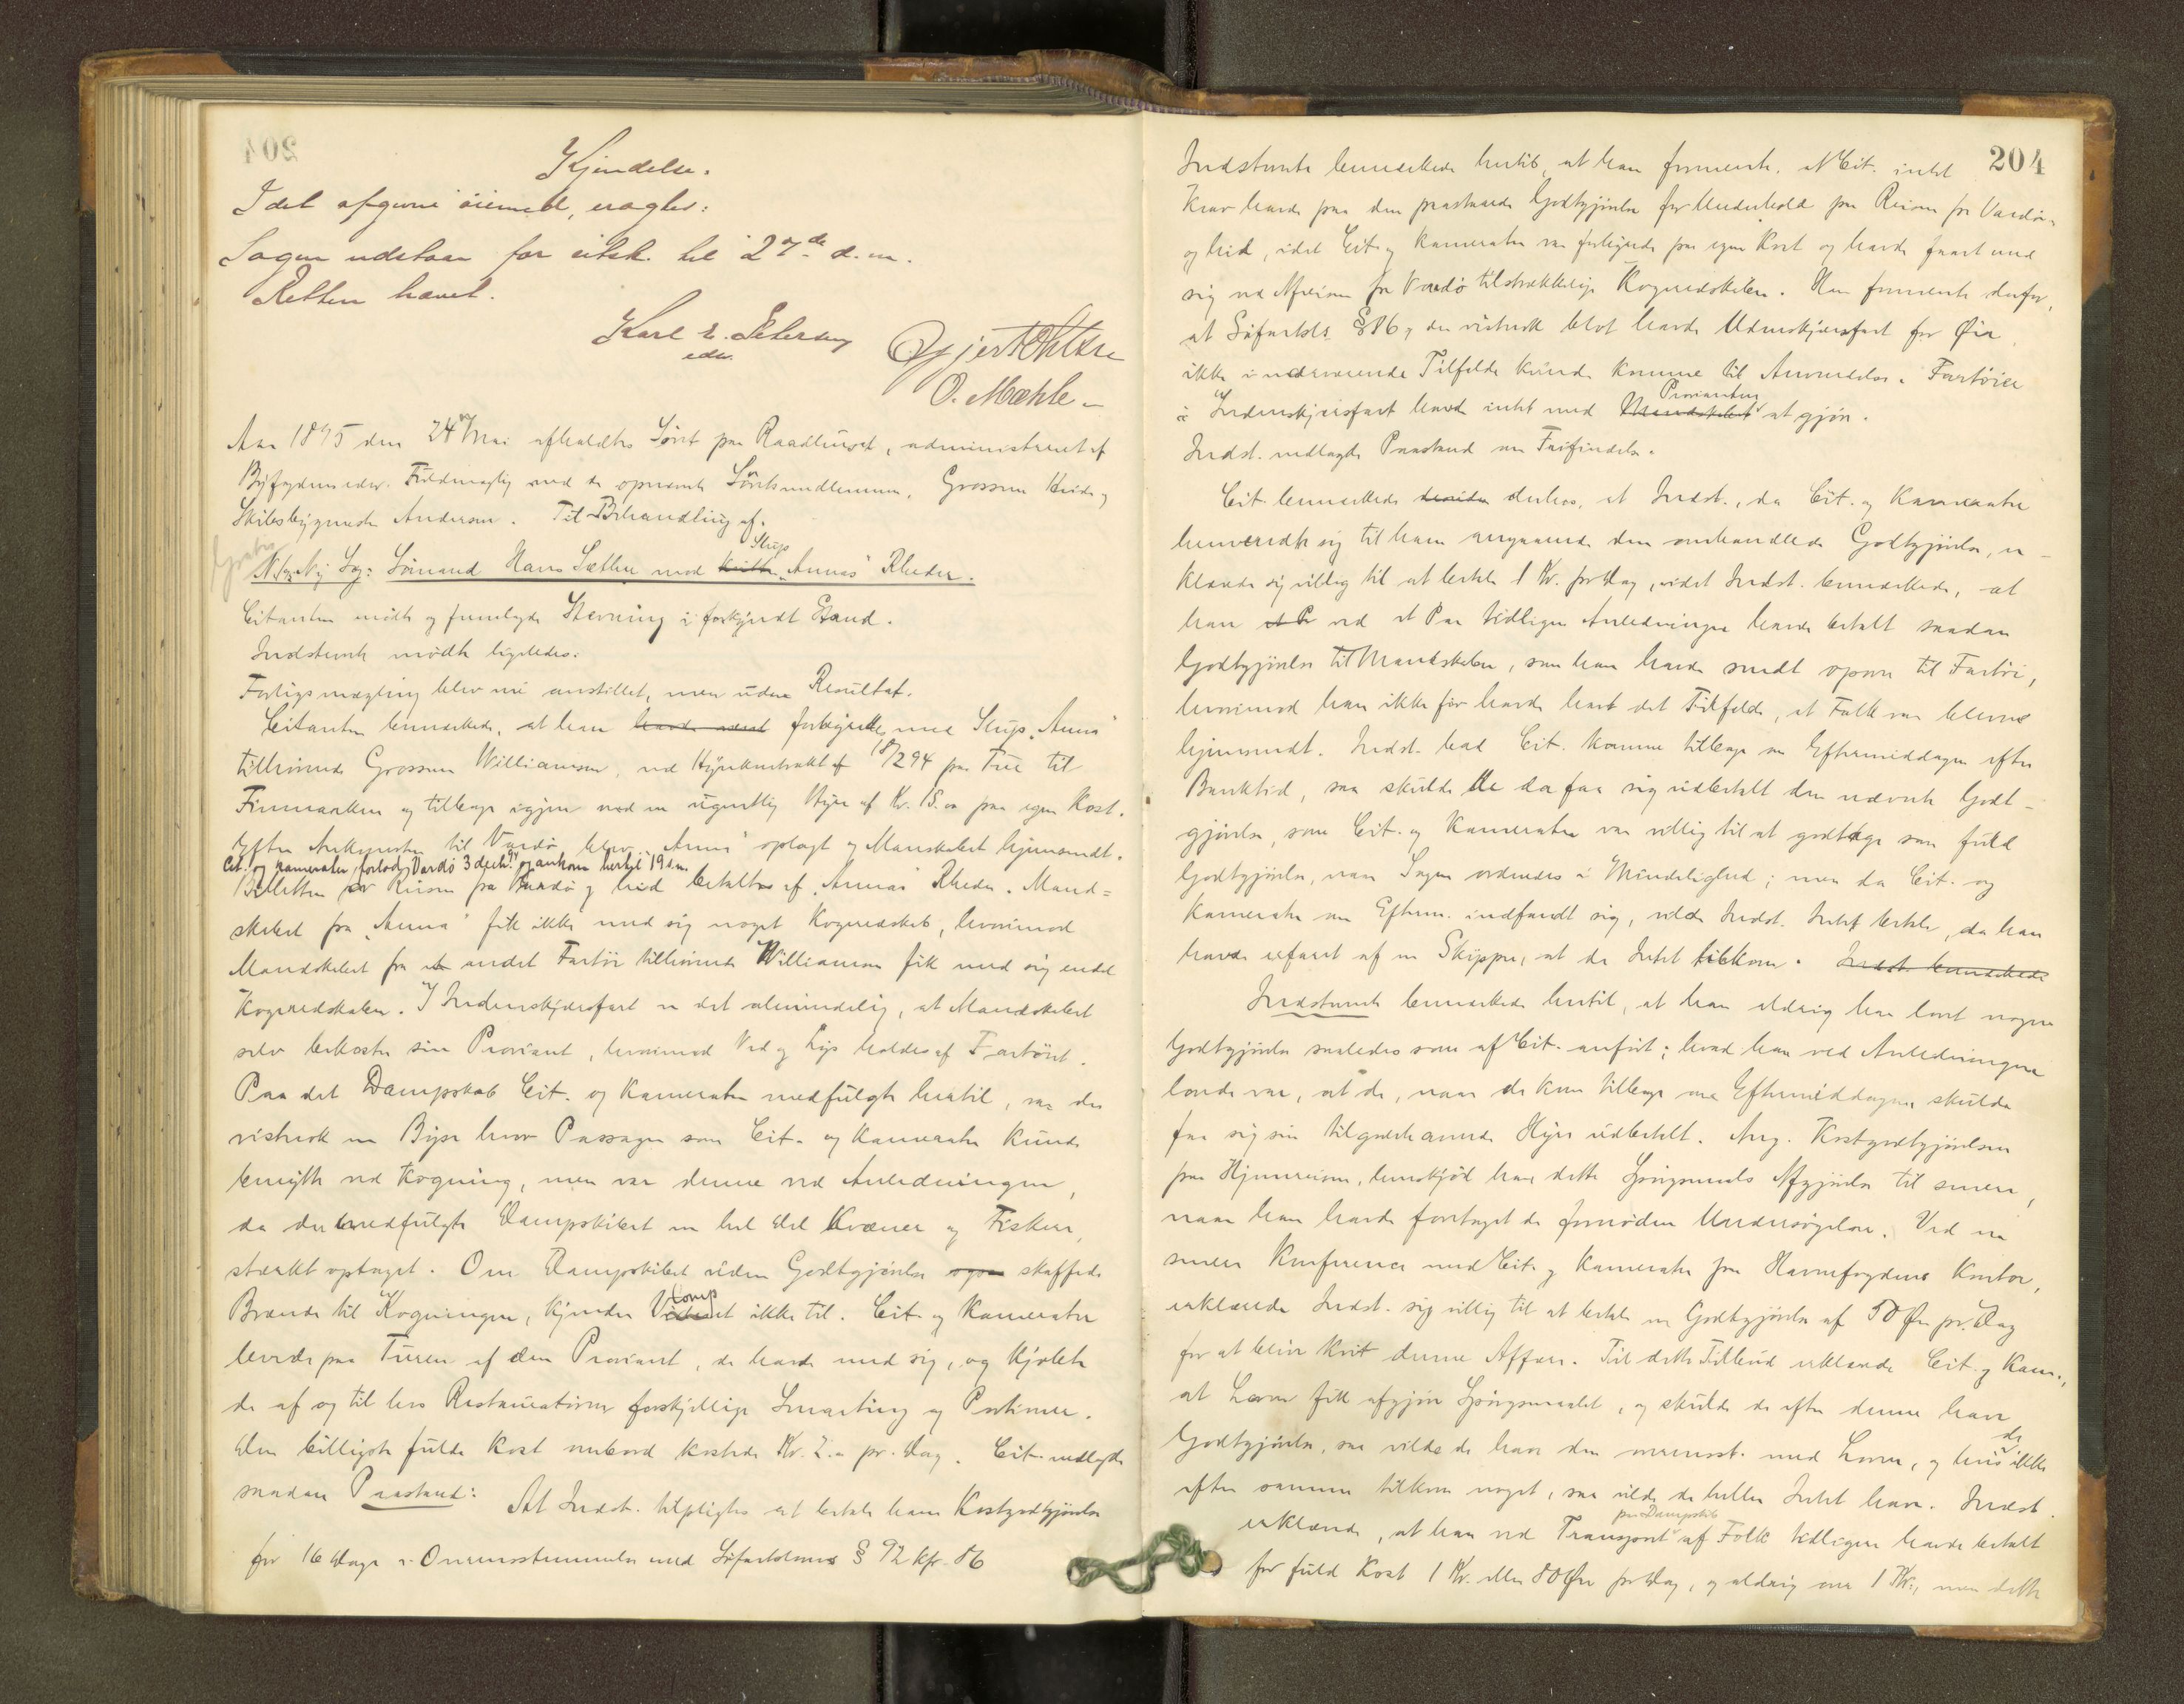 Kjendelse.
I det afgivne øiemed, eragtes:
Sagen udstaar for citsk. til 27de d. m.
Retten hævet.
Karl E. Petersen
edsv.
O. Mæhle
Aar 1895 den 24 Mai afholdtes Søret paa Raadhuset, administreret af
Byfogdens edsv. Fuldmægtig med de opnævnte Søretsmedlemmer, Grosserer Heide og
Skibsbygmester Andersen. Til Behandling af.
Gratis
Ny Sag: Sømand Hans Sæther mod Slup "Annas" Rheder.
Citanten mødte og fremlagde Stevning i forkyndt Stand.
Indstevnte mødte ligeledes.
Forligsmægling blev nu anstillet, men uden Resultat.
Citanten bemærkede, at han havde været forhyret med Slup "Anna"
tilhørende Grosserer Williamsen, ved Hyrekontrakt af 18/2 94 paa Tur til
Finmarken og tilbage igjen med en ugentlig Hyre af Kr. 15.00 paa egen Kost.
Efter Ankomsten til Vardø blev "Anna" oplagt og Mandskabet hjemsendt.
Cit. og kamerater forlod Vardø 3 decbr. og ankom hertil 19 s.m.
Billetten for Reisen fra Vardø og hid betaltes af "Annas" Rheder. Mand=
skabet fra "Anna" fik ikke med sig noget Kogeredskab, hvorimod
Mandskabet fra et andet Fartøi tilhørende Williamsen fik med sig endel
Kogeredskaber. I Indenskjærsfart er det almindelig, at Mandskabet
selv bekoster sin Proviant, hvorimod Ved og Lys holdes af Fartøiet.
Paa det Dampskib Cit. og Kamerater medfulgte hertil, var der
vistnok en Bysse hvor Passagerer som Cit. og Kamerater kunde
benytte ved Kogning, men var denne ved Anledningen,
da der medfulgte Dampskibet en hel Del Kvæner og Fiskere,
stærkt optaget. Om Dampskibet uden Godtgjørelse skaffede
Brænde til Kogningen, kjender Comp ikke til. Cit. og Kamerater
levede paa Turen af den Proviant, de havde med sig, og kjøbte
de af og til hos Restauratøren forskjellige Smaating og Portioner.
Den billigste fulde Kost ombord kostede Kr. 2.00 pr. Dag. Cit. nedlagde
saadan Paastand: At Indst. tilpligtes at betale ham Kostgodtgjørelse
for 16 Dage i Overensstemmelse med Søfartslovens § 92 kfr. 86
204
Indstevnte bemærkede hertil, at han formente, at Cit. intet
Krav havde paa den paastaaede Godtgjørelse for Underhold paa Reisen fra Vardø
og hid, idet Cit. og Kamerater var forhyrede paa egen Kost og havde faaet med
sig ved Afreisen fra Vardø tilstrækkelige Kogeredskaber. Han formente derfor,
at Søfartsls. § 86, der vistnok blot havde Udenskjærsfart for Øie
ikke i nærværende Tilfælde kunde komme til Anvendelse. Fartøier
i Indenskjærsfart havde intet med Provianten at gjøre.
Indst. nedlagde Paastand om Frifindelse.
Cit. bemærkede derhos, at Indst., da Cit. og Kamerater
henvendte sig til ham angaaende den omhandlede Godtgjørelse, er-
klærede sig villig til at betale 1 Kr. pr. Dag, idet Indst. bemærkede, at
han ved et Par tidligere Anledninger havde betalt saadan
Godtgjørelse til Mandskaber, som han havde sendt opover til Fartøi,
hvorimod han ikke før havde havt det Tilfælde, at Folk var blevne
hjemsendt. Indst. bad Cit. komme tilbage om Eftermiddagen efter
Banktid, saa skulde de da faa sig udbetalt den nævnte Godt-
gjørelse, som Cit. og Kamerater var villig til at godtage som fuld
Godtgjørelse, naar Sagen ordnedes i Mindelighed; men da Cit. og
Kamerater om Efterm. indfandt sig, vilde Indst. Intet betale, da han
havde erfaret af en Skipper, at de Intet tilkom. Indst. bemærkede
Indstevnte bemærkede hertil, at han aldrig har lovet nogen
Godtgjørelse saaledes som af Cit. anført; hvad han ved Anledningen
lovede var, at de, naar de kom tilbage om Eftermiddagen, skulde
faa sig sin tilgodehavende Hyre udbetalt. Ang. Kostgodtgjørelsen
paa Hjemreisen, henskjød han dette Spørgsmaals Afgjørelse til senere,
naar han havde foretaget de fornødne Undersøgelser. Ved en
senere Konference med Cit. og Kamerater paa Havnefogdens Kontor,
erklærede Indst. sig villig til at betale en Godtgjørelse af 50 Øre pr. Dag
for at blive kvit denne Affære. Til dette Tilbud erklærede Cit. og Kam.,
at Loven fik afgjøre Spørgsmaalet, og skulde de efter denne have
Godtgjørelse, saa vilde de have den overensst. med Loven, og hvis de ikke
efter samme tilkom noget, saa vilde de heller Intet have. Indst.
erklærede, at han ved Transport pr. Dampskib af Folk tidligere havde betalt
for fuld Kost 1 Kr. eller 80 Øre pr. Dag, og aldrig over 1 Kr., men dette